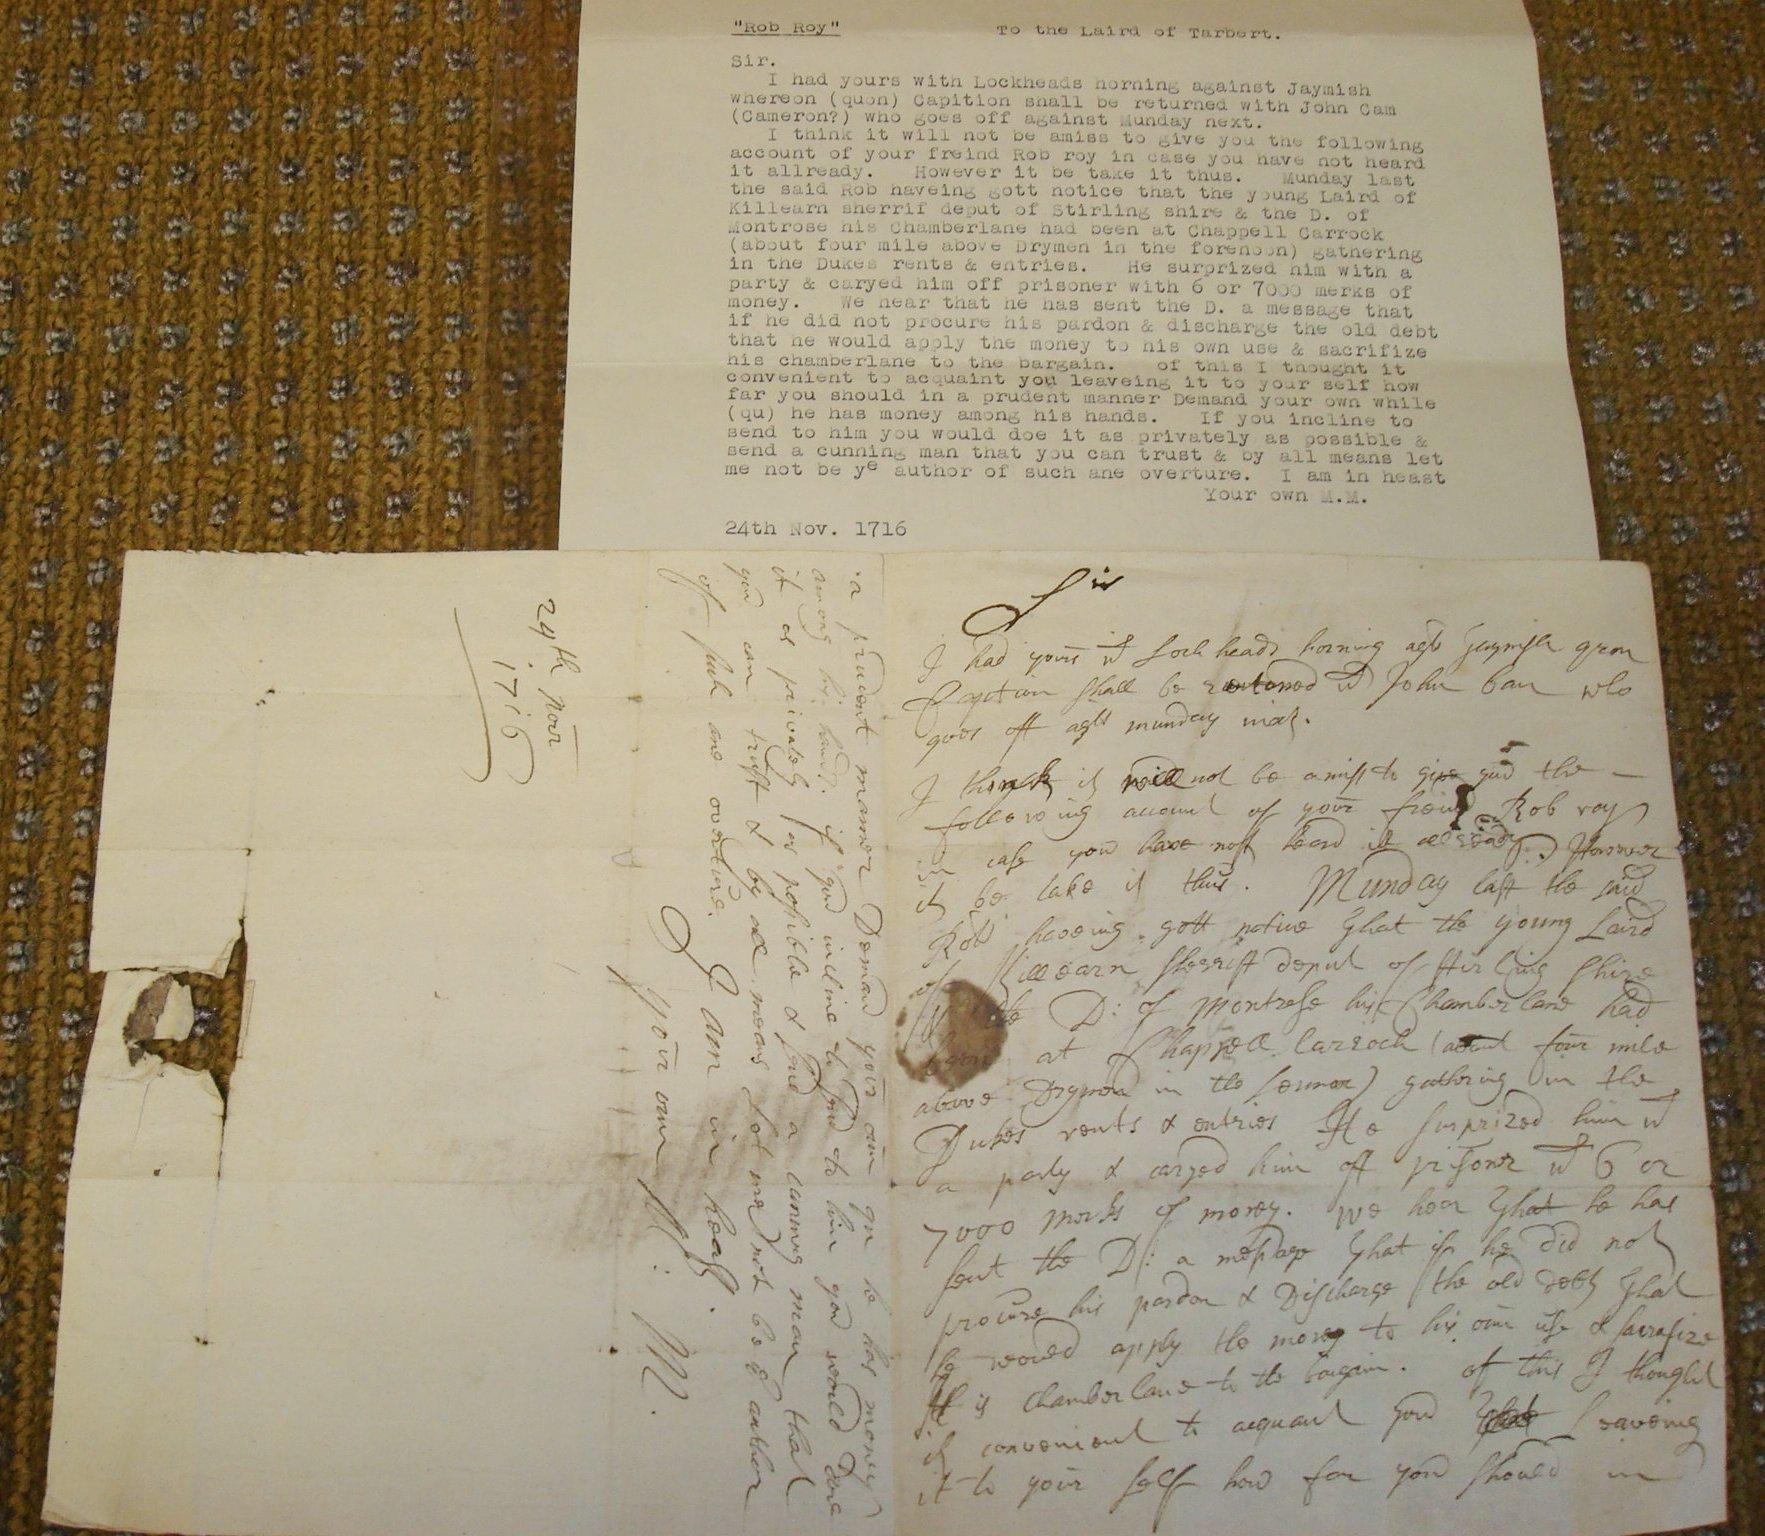 "Rob Roy" To the Laird of Tarbert.
Sir.
I had yours with Lockheads horning against Jaymish
whereon (quon) Capition shall be returned with John Cam
(Cameron?) who goes off against Munday next.
I think it will not be amiss to give you the following
account of your freind Rob roy in case you have not heard
it allready. However it be take it thus. Munday last
the said Rob haveing gott notice that the young Laird of
Killearn sherrif deput of Stirling shire & the D. of
Montrose his Chamberlane had been at Chappell Carrock
(about four mile above Drymen in the forenoon) gathering
in the Dukes rents & entries. He surprized him with a
party & caryed him off prisoner with 6 or 7000 merks of
money. We hear that he has sent the D. a message that
if he did not procure his pardon & discharge the old debt
that he would apply the money to his own use & sacrifize
his chamberlane to the bargain. of this I thought it
convenient to acquaint you leaveing it to your self how
far you should in a prudent manner Demand your own while
(qu) he has money among his hands. If you incline to
send to him you would doe it as privately as possible &
send a cunning man that you can trust & by all means let
me not be ye author of such ane overture. I am in heast
Your own M.M.
24th Nov. 1716
Sir
I had yours wt Lockheads horning agst Jaymish qron
Capition shall be returned wt John Cam who
goes off agst munday nixt.
I think it will not be amiss to give you the
following account of your freind Rob roy
in case you have not heard it allready. However
it be take it thus. Munday last the said
Rob haveing gott notice that the young Laird
of Killearn sherrift deput of Stirling shire
& the D: of Montrose his Chamberlane had
been at Chappell Carroch (about four mile
above Drymen in the Lennox) gathering in the
Dukes rents & entries He surprized him wt
a party & caryed him off prisoner wt 6 or
7000 merks of money. We hear that he has
sent the D: a message that if he did not
procure his pardon & Discharge the old debt that
he would apply the money to his own use & sacrafize
his chamberlane to the bargain. of this I thought
it convenient to acquaint you leaveing
it to your self how far you should in
a prudent manner Demand your own qn he has money
among his hands. if you incline to send to him you would doe
it as privately as possible & send a cunning man that
you can trust & by all means let me not be ye author
of such ane overture. I am in heast.
Your own
M.
24th Novr
1716